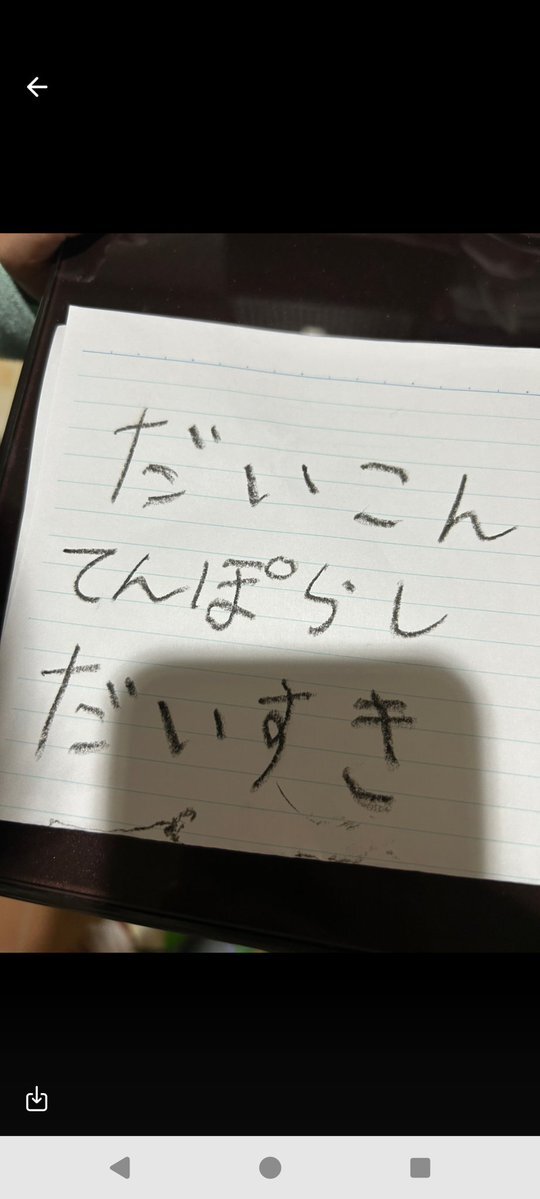 だいこん
てんぽらし
だいすき